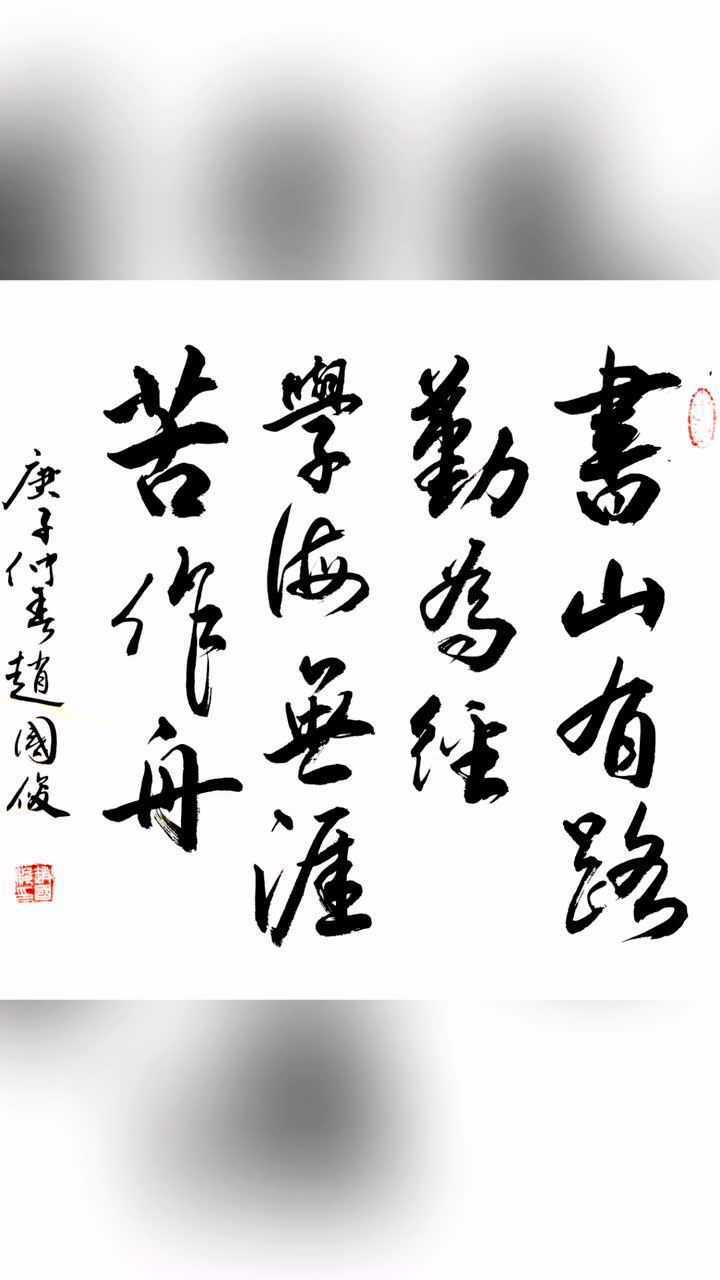 書山有路
勤為經
學海無涯
苦作舟
庚子仲春趙國俊